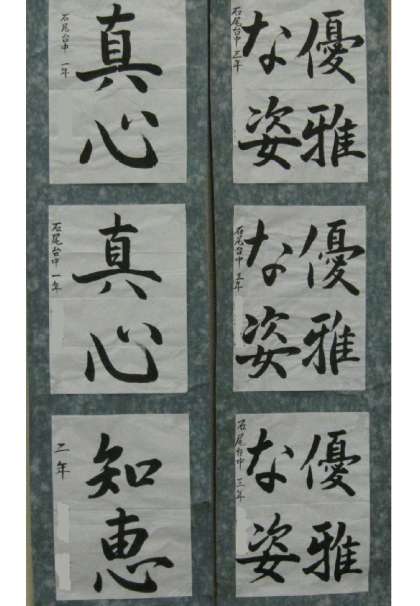 優雅
な姿
石尾台中 三年
優雅
な姿
石尾台中 三年
優雅
な姿
石尾台中 三年
真心
石尾台中 一年
真心
石尾台中 一年
知恵
二年